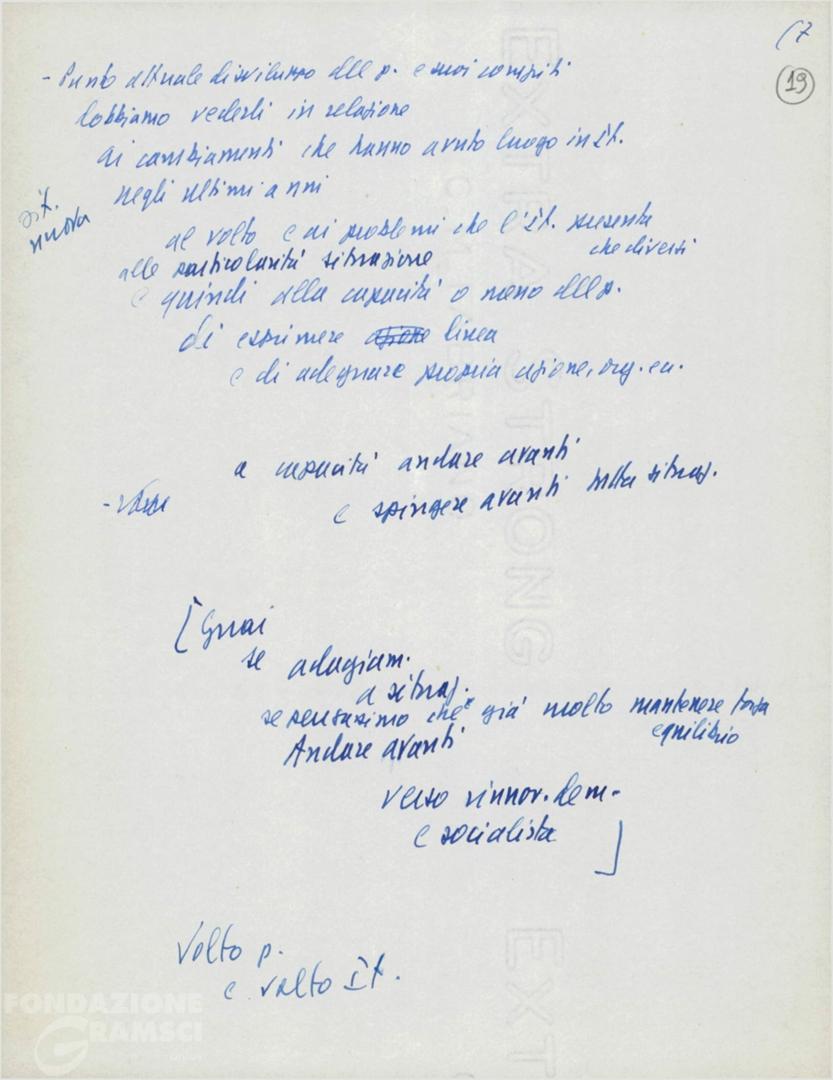 (7
19
- Punto attuale di sviluppo dell p. e suoi compiti
dobbiamo vederli in relazione
ai cambiamenti che hanno avuto luogo in It.
negli ultimi anni
sit.
nuova
al volto e ai problemi che l'It. presenta
che diversi
alle particolarità situazione
e quindi alla capacità o meno dell p.
di esprimere azione linea
e di adeguare propria azione, org. ecc.
a capacità andare avanti
-
e spingere avanti tutta situaz.
[Guai
se adagiam.
a situaz.
se pensassimo che è già molto mantenere forza
equilibrio
Andare avanti
verso rinnov. dem.
e socialista ]
Volto p.
e volto It.
FONDAZIONE
GRAMSCI
EXTRA STRONG
EXT